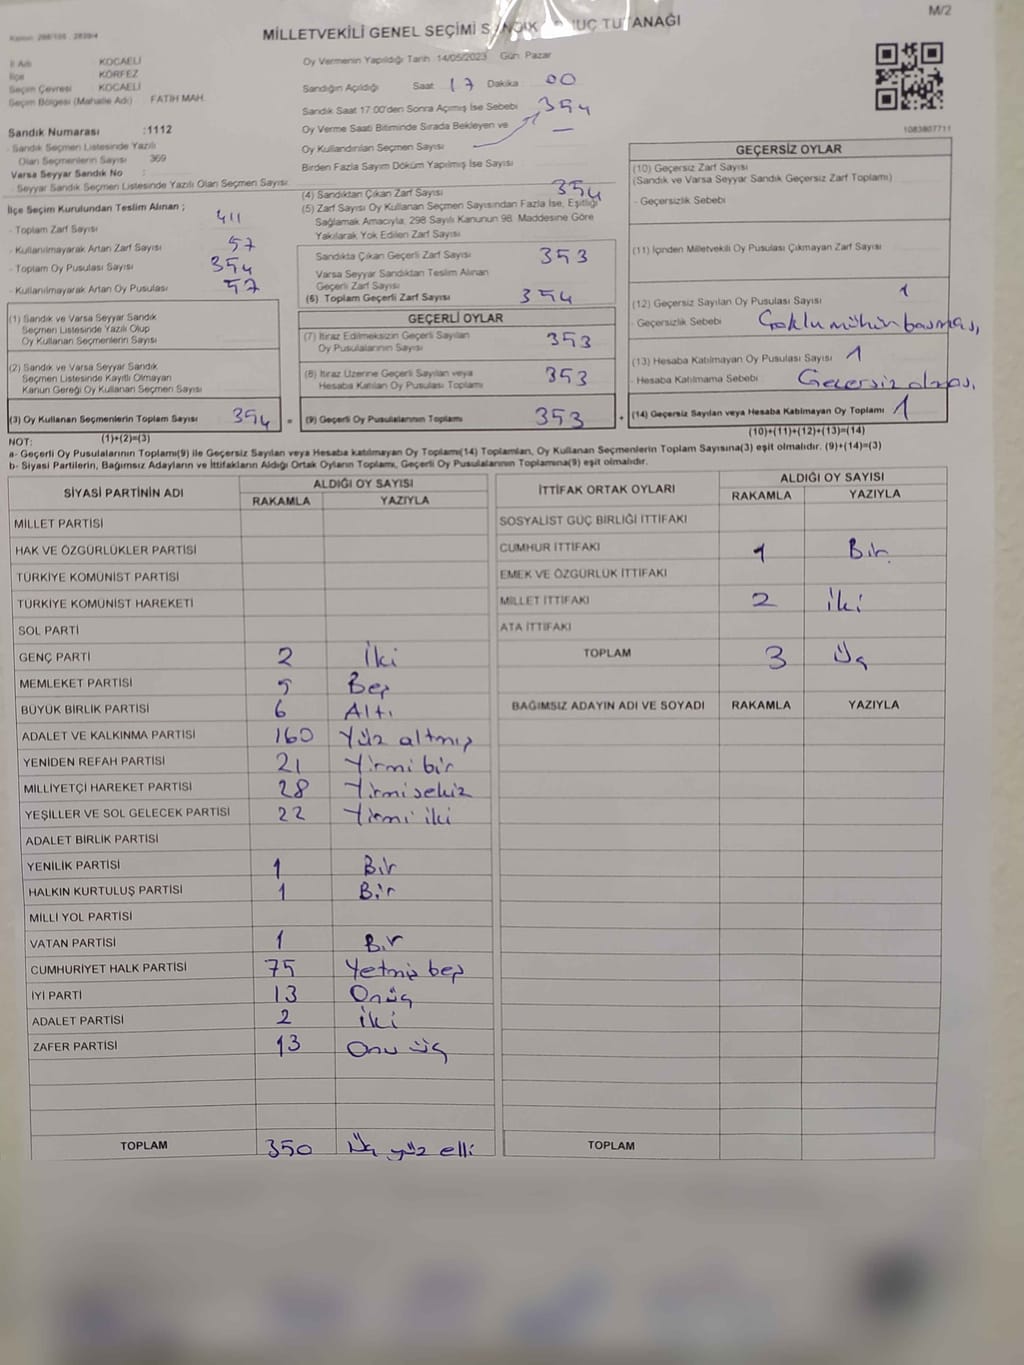 MİLLETVEKİLİ GENEL SEÇİMİ SANDIK SONUÇ TUTANAĞI
M/2
İl Adı KOCAELİ
İlçe KÖRFEZ
Seçim Çevresi KOCAELİ
Seçim Bölgesi (Mahalle Adı) FATİH MAH.
Sandık Numarası :1112
- Sandık Seçmen Listesinde Yazılı
Olan Seçmenlerin Sayısı 369
Varsa Seyyar Sandık No :
- Seyyar Sandık Seçmen Listesinde Yazılı Olan Seçmen Sayısı:
İlçe Seçim Kurulundan Teslim Alınan ;
- Toplam Zarf Sayısı 411
- Kullanılmayarak Artan Zarf Sayısı 57
- Toplam Oy Pusulası Sayısı 354
- Kullanılmayarak Artan Oy Pusulası 57
(1) Sandık ve Varsa Seyyar Sandık
Seçmen Listesinde Yazılı Olup
Oy Kullanan Seçmenlerin Sayısı
(2) Sandık ve Varsa Seyyar Sandık
Seçmen Listesinde Kayıtlı Olmayan
Kanun Gereği Oy Kullanan Seçmen Sayısı
(3) Oy Kullanan Seçmenlerin Toplam Sayısı 354 =
(1)+(2)=(3)
Oy Vermenin Yapıldığı Tarih 14/05/2023 Gün: Pazar
Sandığın Açıldığı Saat 17 Dakika 00
Sandık Saat 17:00'den Sonra Açılmış İse Sebebi 354
Oy Verme Saati Bitiminde Sırada Bekleyen ve
Oy Kullandırılan Seçmen Sayısı —
Birden Fazla Sayım Döküm Yapılmış İse Sayısı
(4) Sandıktan Çıkan Zarf Sayısı 354
(5) Zarf Sayısı Oy Kullanan Seçmen Sayısından Fazla İse, Eşitliği
Sağlamak Amacıyla, 298 Sayılı Kanunun 98. Maddesine Göre
Yakılarak Yok Edilen Zarf Sayısı
Sandıkta Çıkan Geçerli Zarf Sayısı 353
Varsa Seyyar Sandıktan Teslim Alınan
Geçerli Zarf Sayısı
(6) Toplam Geçerli Zarf Sayısı 354
GEÇERLİ OYLAR
(7) İtiraz Edilmeksizin Geçerli Sayılan
Oy Pusulalarının Sayısı 353
(8) İtiraz Üzerine Geçerli Sayılan veya
Hesaba Katılan Oy Pusulası Toplamı 353
(9) Geçerli Oy Pusulalarının Toplamı 353 +
1083807711
GEÇERSİZ OYLAR
(10) Geçersiz Zarf Sayısı
(Sandık ve Varsa Seyyar Sandık Geçersiz Zarf Toplamı)
- Geçersizlik Sebebi
(11) İçinden Milletvekili Oy Pusulası Çıkmayan Zarf Sayısı
(12) Geçersiz Sayılan Oy Pusulası Sayısı 1
- Geçersizlik Sebebi
(13) Hesaba Katılmayan Oy Pusulası Sayısı 1
- Hesaba Katılmama Sebebi Geçersiz olması,
(14) Geçersiz Sayılan veya Hesaba Katılmayan Oy Toplamı 1
(10)+(11)+(12)+(13)=(14)
NOT:
a- Geçerli Oy Pusulalarının Toplamı(9) ile Geçersiz Sayılan veya Hesaba katılmayan Oy Toplamı(14) Toplamları, Oy Kullanan Seçmenlerin Toplam Sayısına(3) eşit olmalıdır. (9)+(14)=(3)
b- Siyasi Partilerin, Bağımsız Adayların ve İttifakların Aldığı Ortak Oyların Toplamı, Geçerli Oy Pusulalarının Toplamına(9) eşit olmalıdır.
SİYASİ PARTİNİN ADI ALDIĞI OY SAYISI
RAKAMLA YAZIYLA
MİLLET PARTİSİ
HAK VE ÖZGÜRLÜKLER PARTİSİ
TÜRKİYE KOMÜNİST PARTİSİ
TÜRKİYE KOMÜNİST HAREKETİ
SOL PARTİ
GENÇ PARTİ 2 İki
MEMLEKET PARTİSİ 5 Beş
BÜYÜK BİRLİK PARTİSİ 6 Altı
ADALET VE KALKINMA PARTİSİ 160 Yüz altmış
YENİDEN REFAH PARTİSİ 21 Yirmi bir
MİLLİYETÇİ HAREKET PARTİSİ 28 Yirmi sekiz
YEŞİLLER VE SOL GELECEK PARTİSİ 22 Yirmi iki
ADALET BİRLİK PARTİSİ
YENİLİK PARTİSİ 1 Bir
HALKIN KURTULUŞ PARTİSİ 1 Bir
MİLLİ YOL PARTİSİ
VATAN PARTİSİ 1 Bir
CUMHURİYET HALK PARTİSİ 75 Yetmiş beş
İYİ PARTİ 13 Onüç
ADALET PARTİSİ 2 iki
ZAFER PARTİSİ 13 Onu üç
TOPLAM 350 Üç yüz elli
İTTİFAK ORTAK OYLARI ALDIĞI OY SAYISI
RAKAMLA YAZIYLA
SOSYALİST GÜÇ BİRLİĞİ İTTİFAKI
CUMHUR İTTİFAKI 1 Bir
EMEK VE ÖZGÜRLÜK İTTİFAKI
MİLLET İTTİFAKI 2 iki
ATA İTTİFAKI
TOPLAM 3 Üç
BAĞIMSIZ ADAYIN ADI VE SOYADI RAKAMLA YAZIYLA
TOPLAM